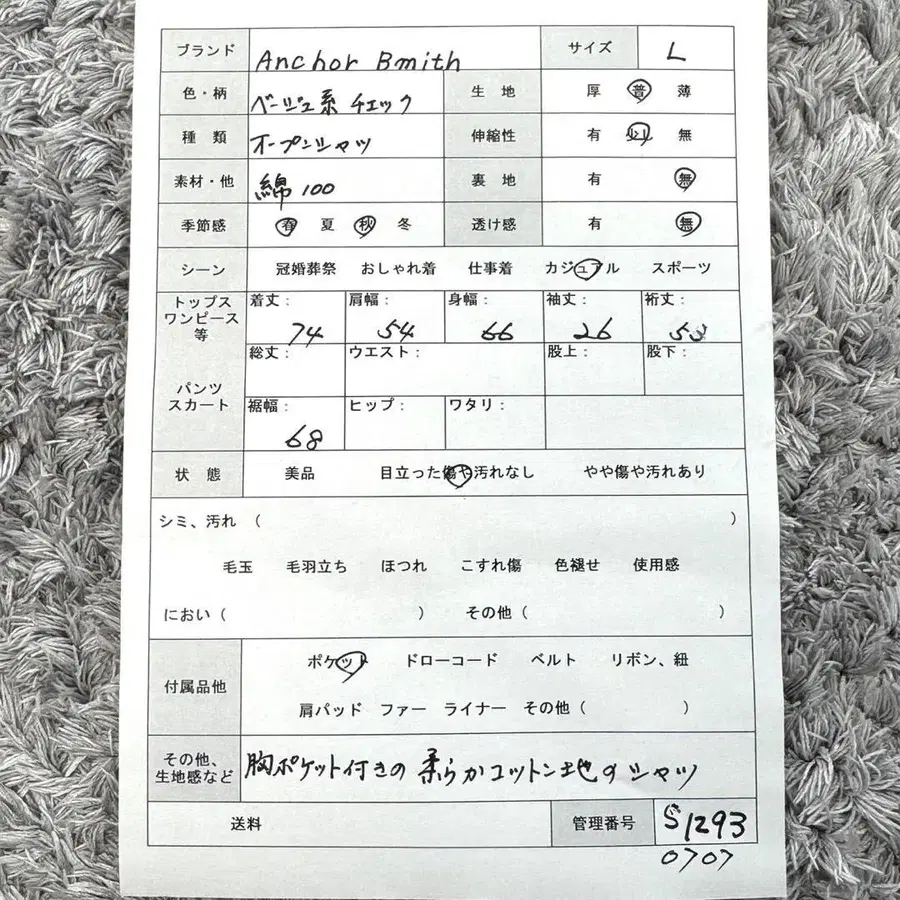 ブランド Anchor Bmith サイズ L
色・柄 ベージュ系 チェック 生地 厚 普 薄
種類 オープンシャツ 伸縮性 有 少 無
素材・他 綿100 裏地 有 無
季節感 春 夏 秋 冬 透け感 有 無
シーン 冠婚葬祭 おしゃれ着 仕事着 カジュアル スポーツ
トップス ワンピース 等 着丈: 74 肩幅: 54 身幅: 66 袖丈: 26 裄丈:
パンツ スカート 総丈: ウエスト: 股上: 股下:
裾幅: 68 ヒップ: ワタリ:
状態 美品 目立った傷や汚れなし やや傷や汚れあり
シミ、汚れ ( )
毛玉 毛羽立ち ほつれ こすれ傷 色褪せ 使用感
におい ( ) その他 ( )
付属品他 ポケット ドローコード ベルト リボン、紐
肩パッド ファー ライナー その他 ( )
その他、生地感など 胸ポケット付きの柔らかコットン地のシャツ
送料 管理番号 S1293
0707